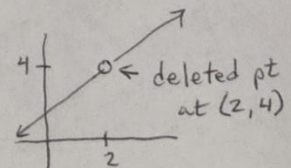 4
deleted pt
at (2,4)
2